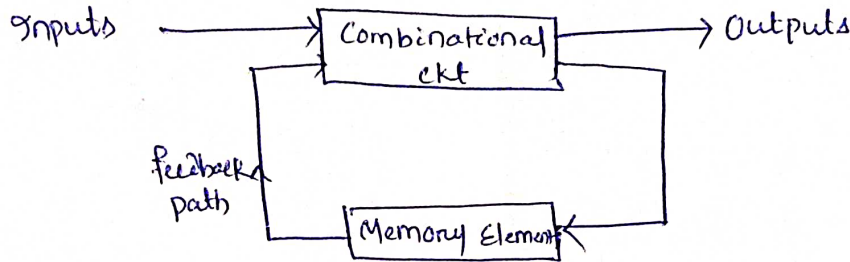 Inputs
Combinational
ckt
Outputs
feedback
path
Memory Element